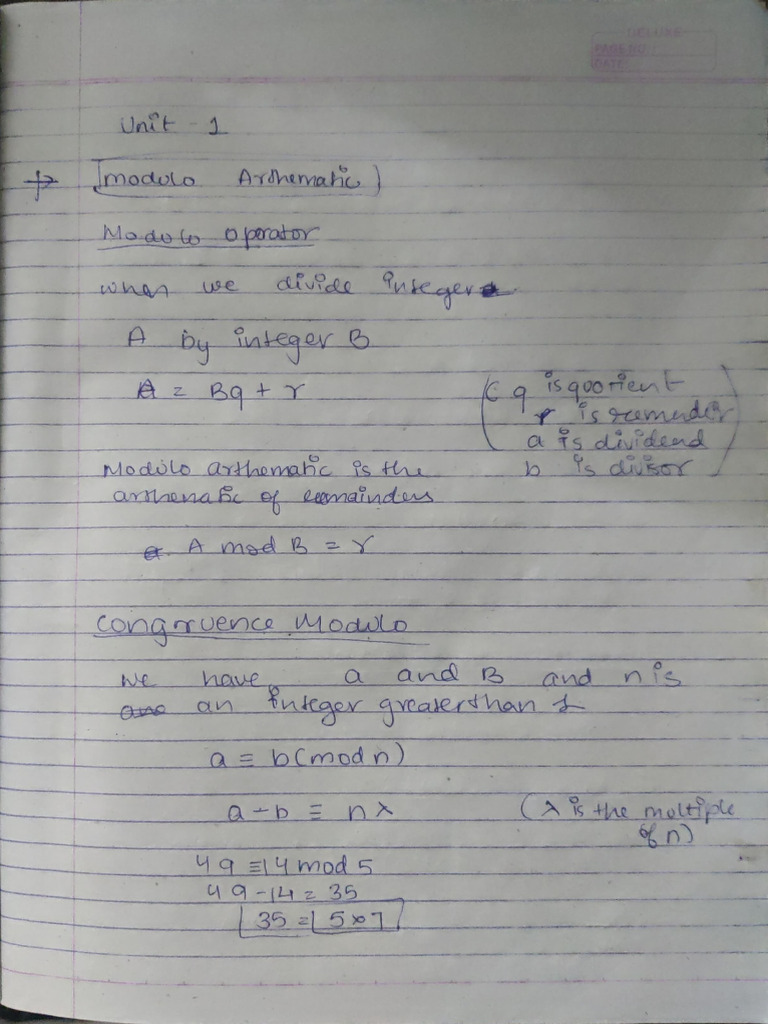 DELUXE
PAGE NO.:
DATE:
Unit - 1
→ [modulo Arthematic]
Modulo operator
when we divide integer
A by integer B
A = Bq + r
(( q is quotient
r is remender
a is dividend
b is divisor )
Modulo arthematic is the
arthematic of remainders
A mod B = r
Congruence Modulo
We have a and B and n is
an integer greaterthan 1
a ≡ b(mod n)
a - b ≡ n λ
(λ is the multiple
of n)
49 ≡ 14 mod 5
49 - 14 = 35
35 = 5 × 7